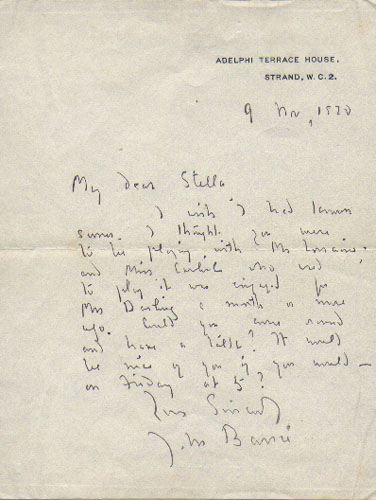 ADELPHI TERRACE HOUSE,
STRAND, W.C.2.
9 Nov, 1920
My dear Stella
I wish I had known
sooner. I thought you were
to be playing with Mr Lorraine,
and Miss Carlisle who used
to play it was engaged for
Mrs Darling a month or more
ago. Could you come round
and have a talk? It would
be nice of you if you would —
on Friday at 5?
Yours Sincerely
J. M. Barrie